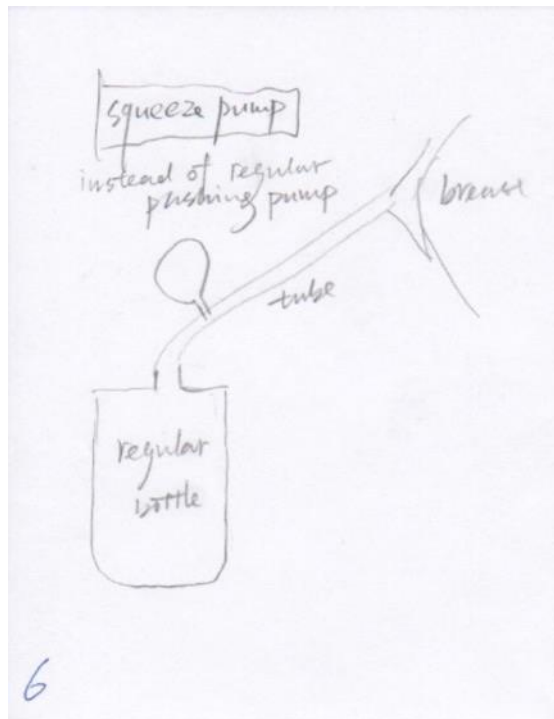 squeeze pump
instead of regular
pushing pump
breast
tube
regular
bottle
6